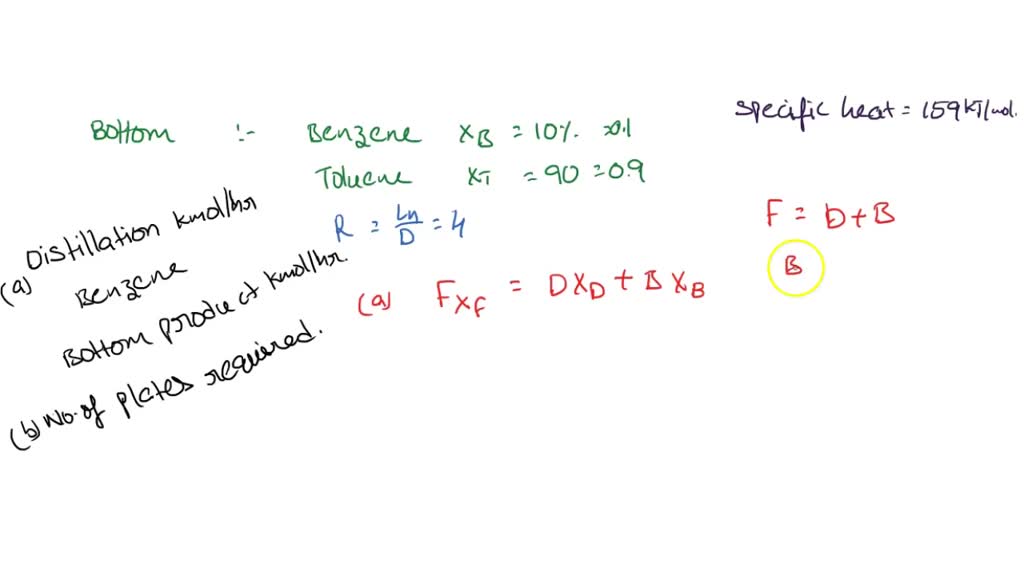 Bottom :- Benzene XB = 10% = 0.1
Toluene XT = 90 = 0.9
R = Ln/D = 4
specific heat = 159 kJ/mol.
(a) Distillation kmol/hr
Benzene
Bottom product kmol/hr.
(b) No. of plates required.
(a) FXF = DXD + BXB
F = D+B
B